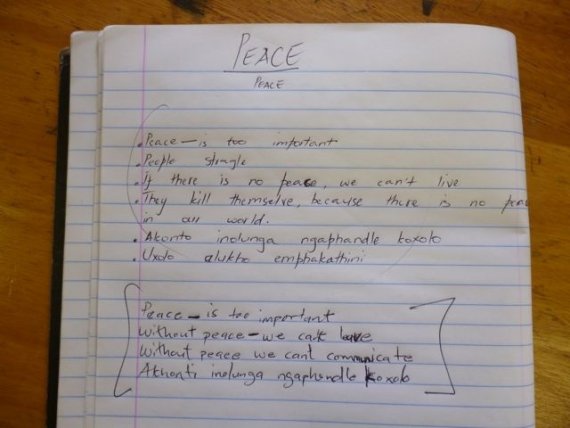 PEACE
PEACE
• Peace — is too important
• People stragle
• If there is no peace, we can't live
• They kill themselve, because there is no peac
in our world.
• Akonto inolunga ngaphandle koxolo
• Uxolo alukho emphakathini
Peace — is too important
Without peace — we can't
Without peace we cant communicate
Akhonti inolunga ngaphandle koxolo